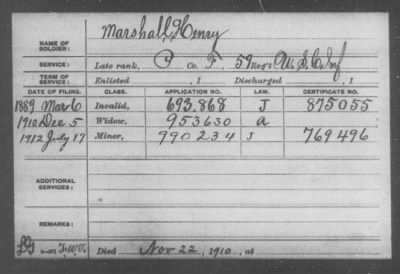 NAME OF SOLDIER: Marshall, Henry
SERVICE: Late rank, P Co. F, 59 Reg't U.S.C. Inf
TERM OF SERVICE: Enlisted , 1 Discharged , 1
DATE OF FILING. CLASS. APPLICATION NO. LAW. CERTIFICATE NO.
1889 Mar 6 Invalid, 693.868 J 875055
1910 Dec 5 Widow, 953630 a
1912 July 17 Minor, 990234 J 769496
ADDITIONAL SERVICES:
REMARKS:
Died Nov 22, 1910, at